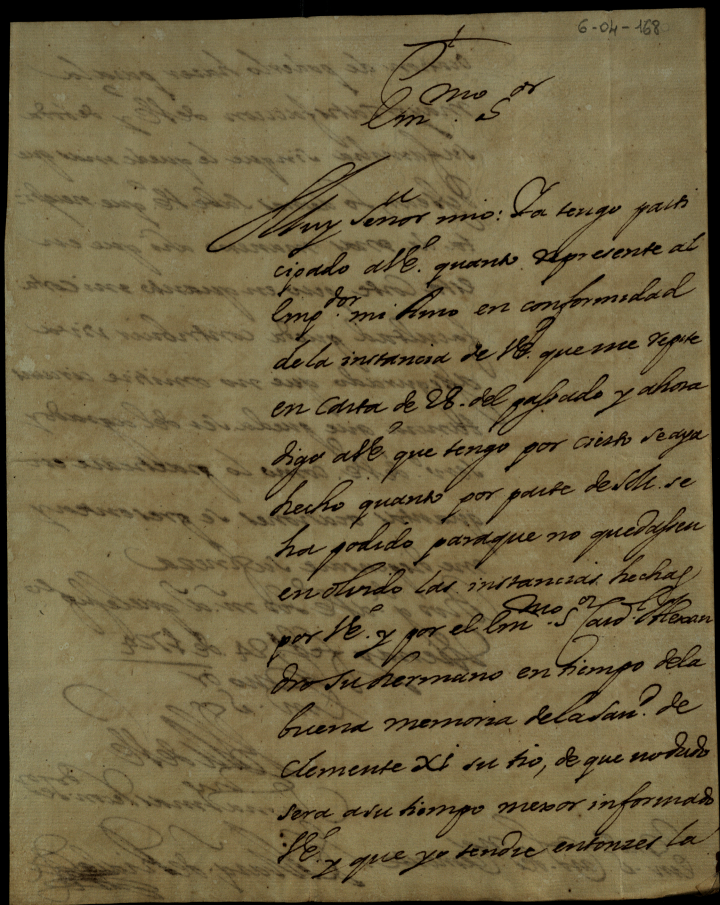 6-04-168
Em.mo S.or
Muy señor mio: Ya tengo parti
cipado a VE.ª quanto represente al
Emp.dor mi Amo en conformidad
de la instancia de VE.ª que me repite
en carta de 28. del passado y ahora
digo a VE.ª que tengo por cierto se aya
hecho quanto por parte de se
ha podido paraque no quedassen
en olvido las instancias hechas
por VE.ª y por el Em.mo S.or Card.l Alexan
dro su hermano en tiempo de la
buena memoria de la San.d de
Clemente XI su tio, de que no dudo
sera a su tiempo mexor informado
VE.ª y que yo tendre entonzes la